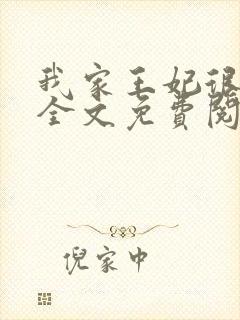 我家王妃很
全文免费阅
倪家中